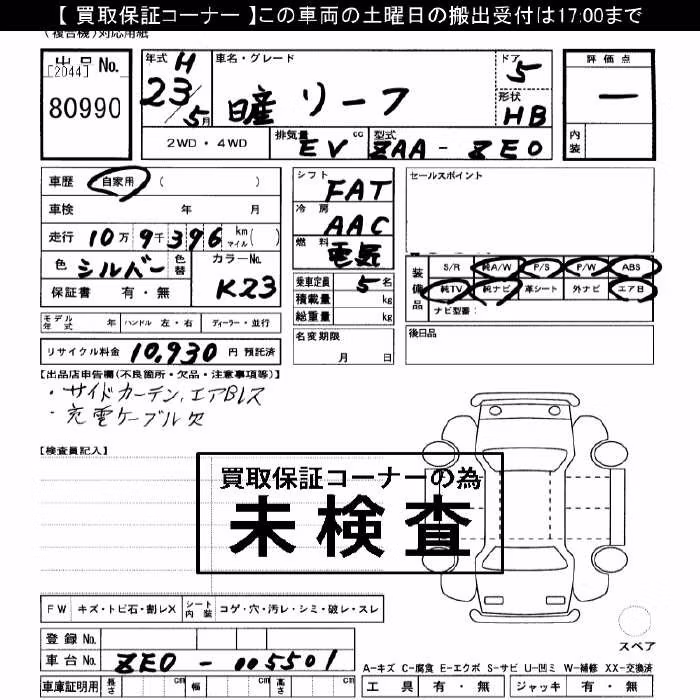 【 買取保証コーナー 】この車両の土曜日の搬出受付は17:00まで
(複合機)対応用紙
出品 No.
[2044]
80990
年式 H 23/5月
車名・グレード
日産 リーフ
ドア 5
形状 HB
評価点
ー
内装
2WD・4WD
排気量 EV cc
型式 ZAA - ZE0
車歴 自家用 ( )
車検 年 月
走行 10万9千396 km マイル( )
色 シルバー 色替
カラーNo. K23
保証書 有・無
シフト FAT
冷房 AAC
燃料 電気
乗車定員 5 名
積載量 kg
総重量 kg
セールスポイント
装備品
S/R 純A/W P/S P/W ABS
純TV 純ナビ 革シート 外ナビ エアB
ナビ型番：
モデル年式 年 ハンドル 左・右 ディーラー・並行
リサイクル料金 10,930 円 預託済
名変期限 月 日
後日品
【出品店申告欄(不良箇所・欠品・注意事項等)】
・サイドカーテン,エアBレス
・充電ケーブル欠
【検査員記入】
買取保証コーナーの為
未検査
FW キズ・トビ石・割レX シート内装 コゲ・穴・汚レ・シミ・破レ・スレ
登録 No.
車台 No. ZE0 - 005501
車庫証明用 長さ cm 幅 cm 高さ cm
スペア
A-キズ C-腐食 E-エクボ S-サビ U-凹ミ W-補修 XX-交換済
工具 有・無 ジャッキ 有・無